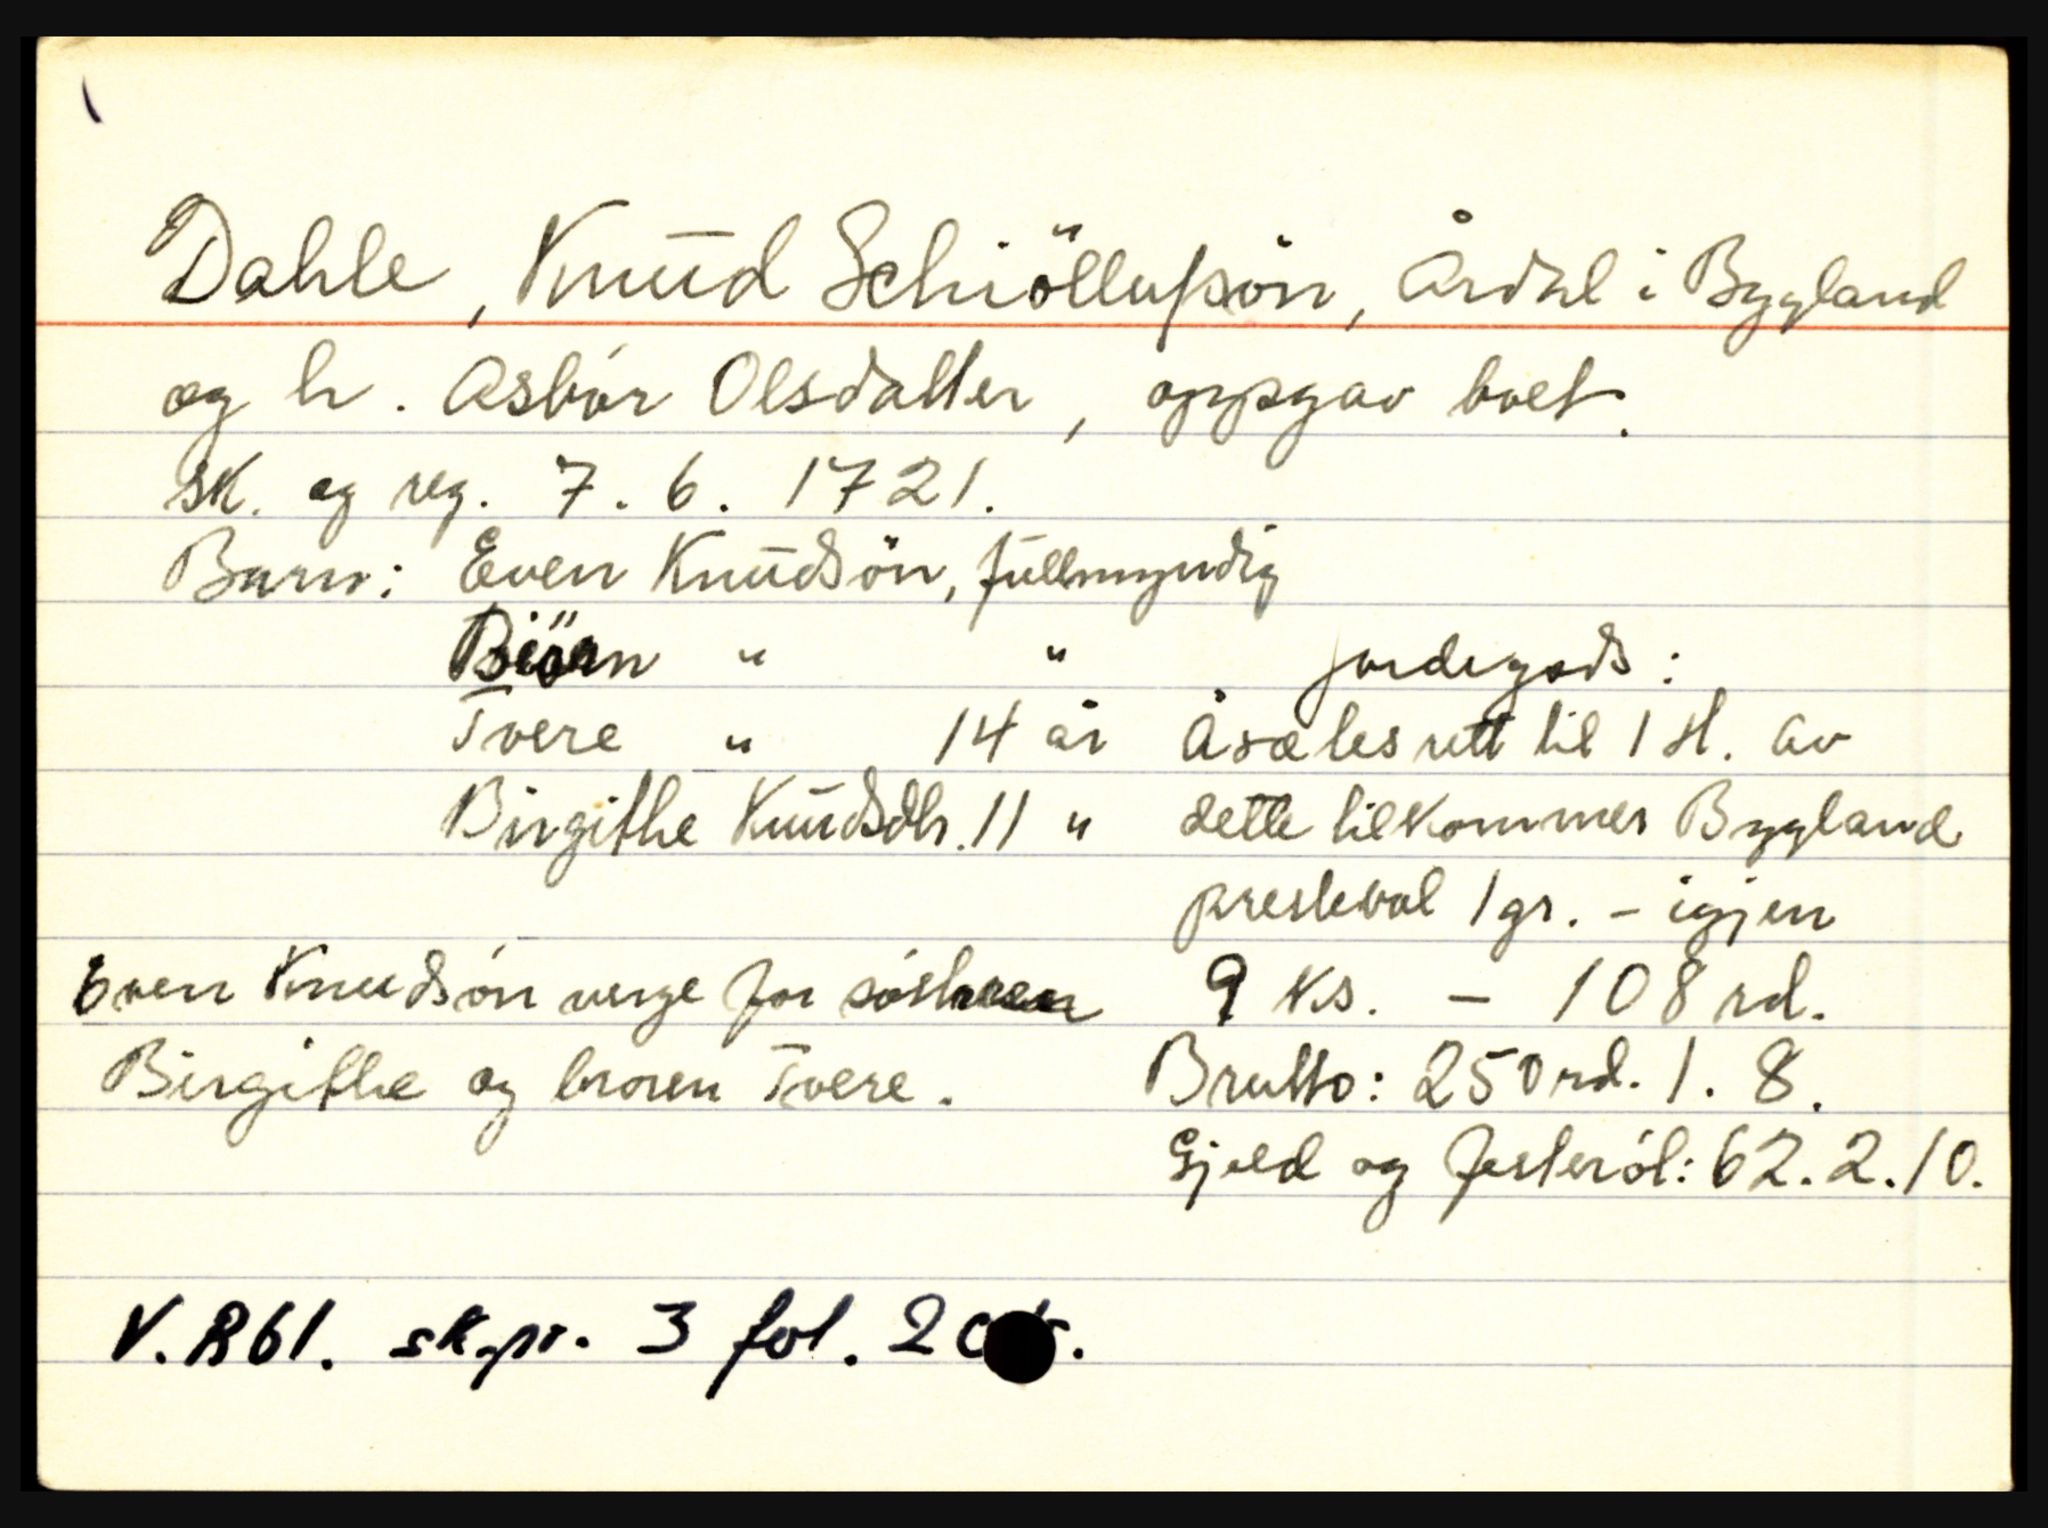 Dahle, Knud Schiöllufsön, Årdal i Bygland
og h. Asbör Olsdatter, oppgav boet.
sk. og reg. 7. 6. 1721.
Barn: Even Knudsön, fullmyndig
Biörn " "
Tvere " 14 år
Birgithe Knudsdtr. 11 "
Jordegods:
Åsæles rett til 1 H. av
dette tilkommer Bygland
prestebol 1 gr. - igjen
9 ks. - 108 rd.
Brutto: 250 rd. 1. 8.
Gjeld og festeröl: 62. 2. 10.
Even Knudsön verge for söstren
Birgithe og broren Tvere.
V. R 61. sk.pr. 3 fol. 20